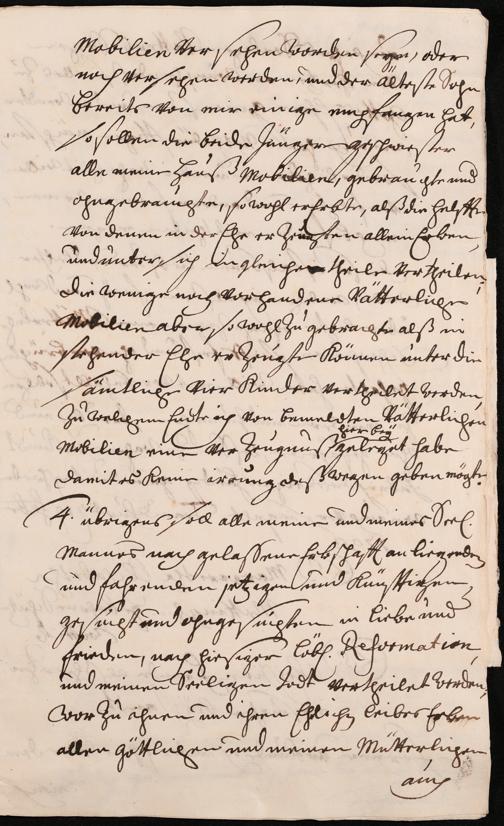 Mobilien versehen worden seyn, oder
noch versehen werden, und der älteste Sohn
bereits von mir einige empfangen hat,
so sollen die beide Jünger geschwister
alle meine Hauß Mobilien, gebrauchte und
ohngebrauchte, sowohl ererbte, alß die helffte
von denen in der Ehe erzeugten allein Erben,
und unter sich in gleiche theile vertheilen,
die wenige noch vorhandene Vätterliche
Mobilien aber, sowohl zugebrachte alß in
stehender Ehe erzeugte können unter die
sämtliche vier Kinder vertheilet werden,
zu welchem Ende ich von bemeldten Vätterlichen
hier bey
Mobilien eine Verzeugnuß gelegt habe
damit es keine irrung deßwegen geben möchte.
4. übrigens soll alle meine und meines Seel.
Mannes nachgelassene Erbschafft an liegenden
und fahrenden jetzigen und Künfftigen
gesucht und ohngesuchten in Liebe und
frieden, nach hiesiger Löbl. Reformation
und meinen Seeligen Todt vertheilet werden,
worzu ihnen und ihren Ehlichen Leibes Erben
allen göttlichen und meinen Mütterlichen